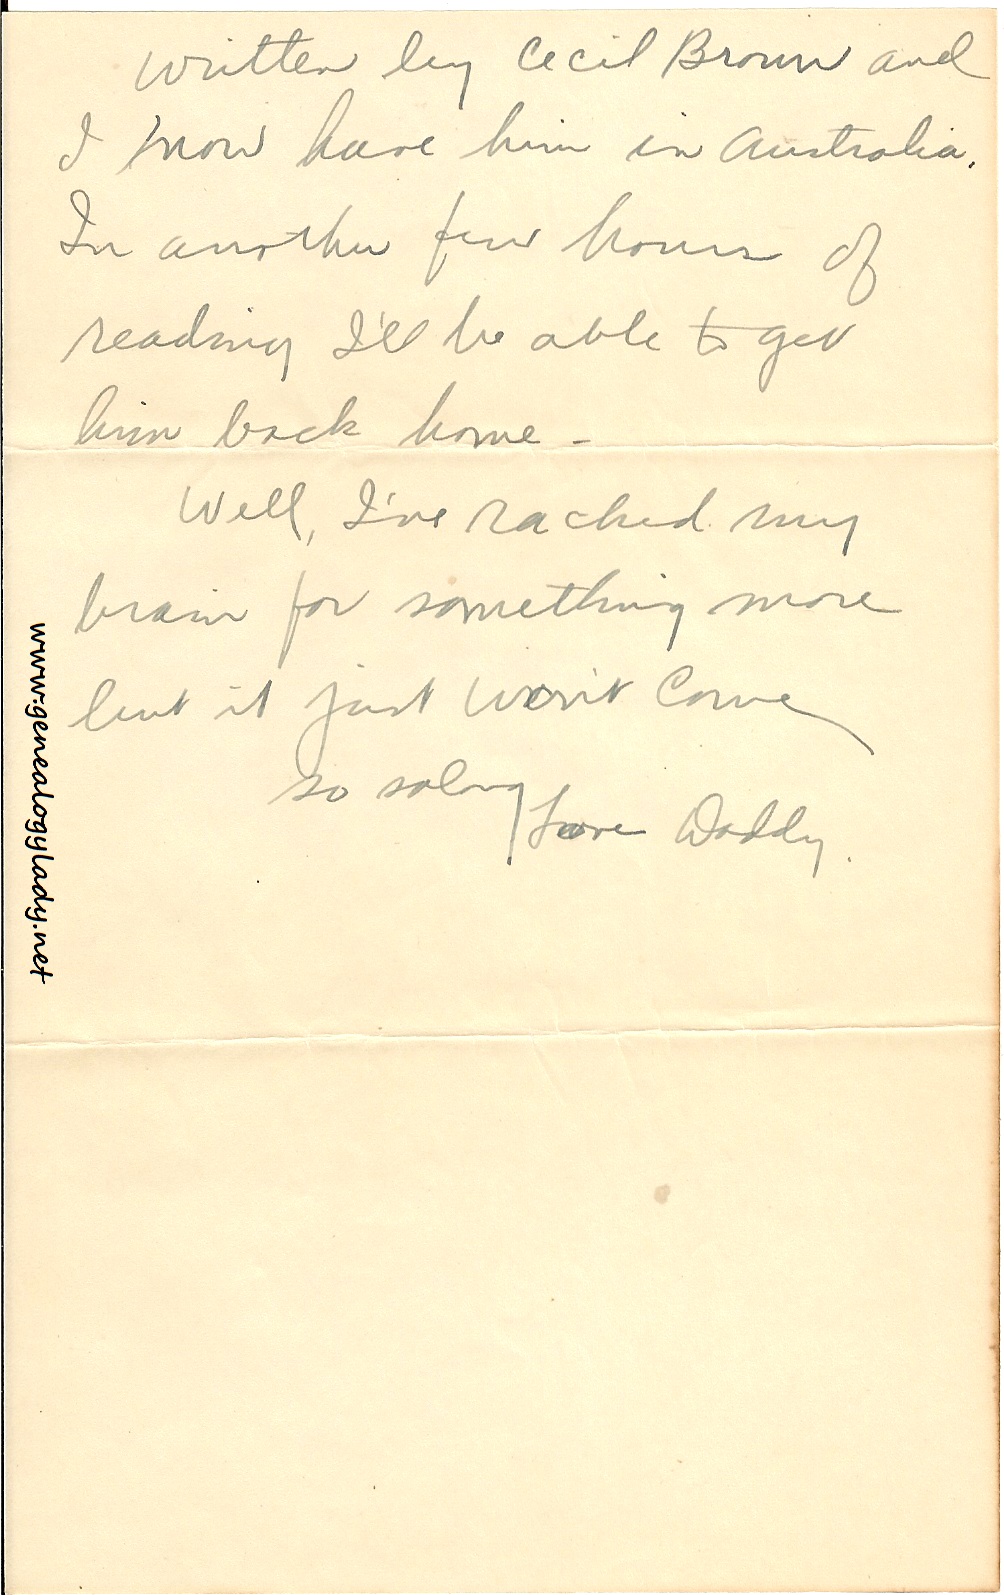 written by Cecil Brown and
I now have him in Australia.
In another few hours of
reading I'll be able to get
him back home -
Well, I've racked my
brain for something more
but it just won't come
so solong
Love Daddy.
www.genealogylady.net